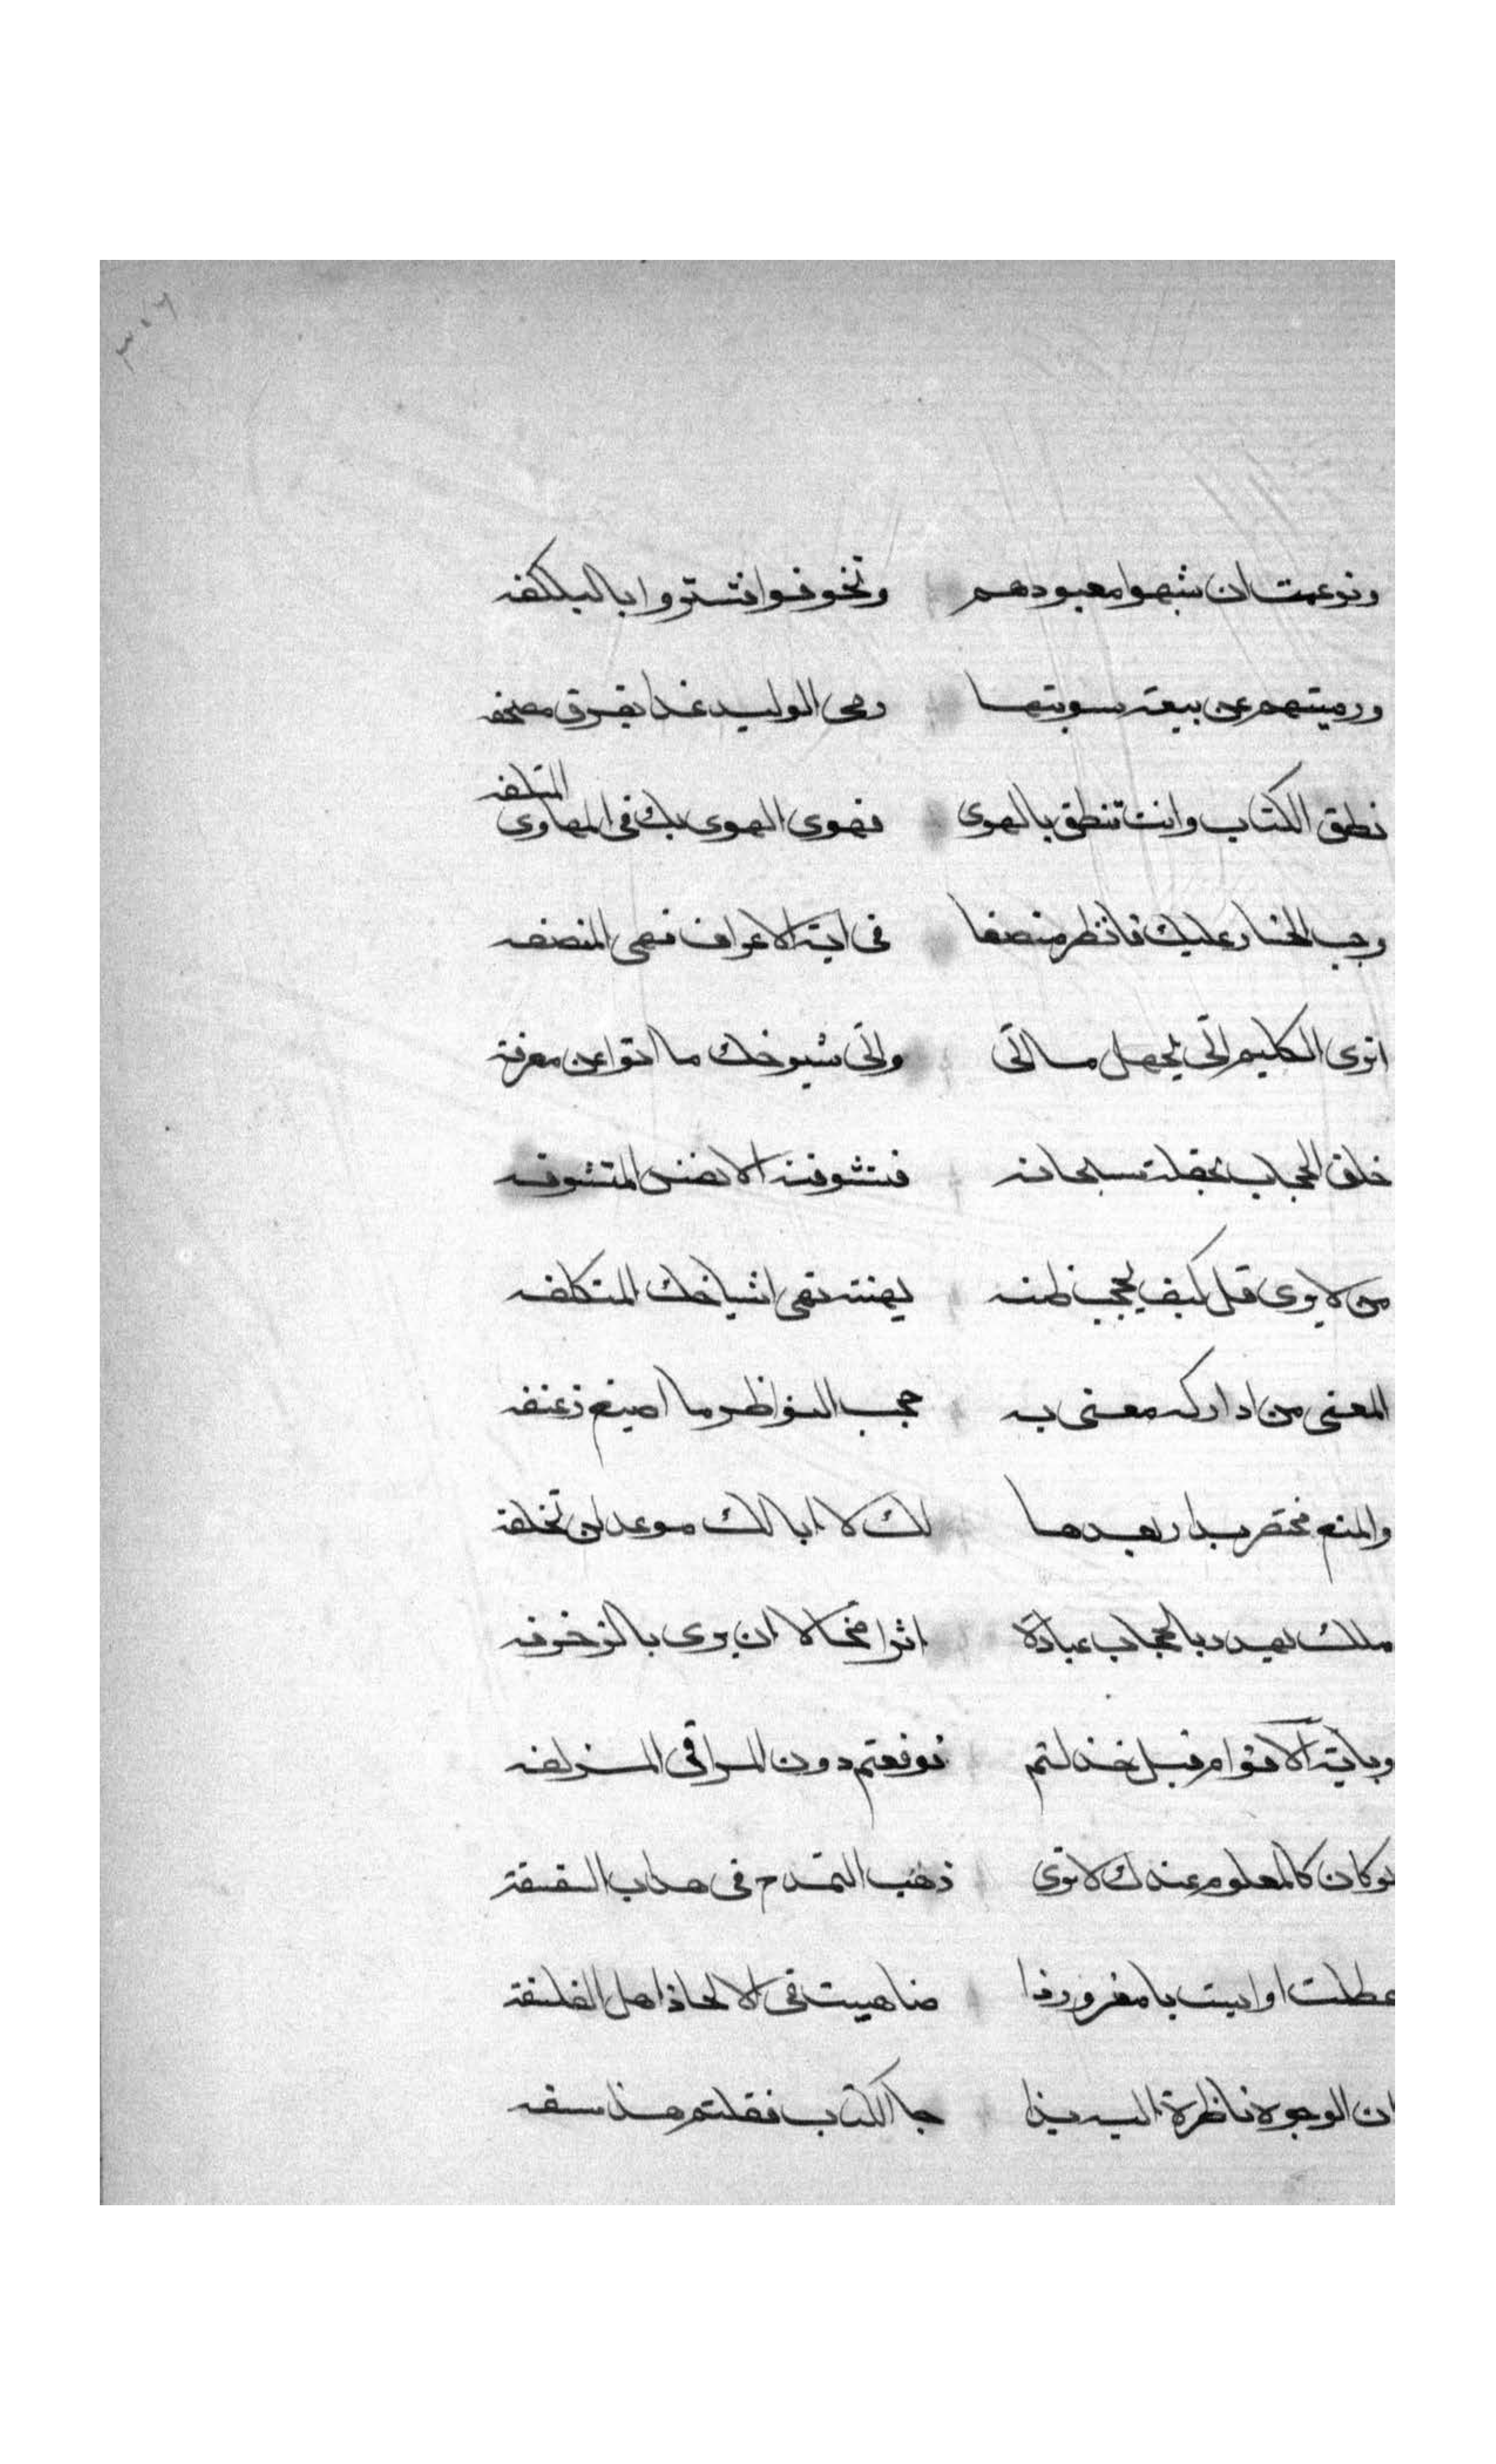 ٣٠٦
وزعمت ان شبهوا معبودهم وتخوفوا فتستروا بالبلكفه
ورميتهم عن بيعة سويتها رمى الوليد غدا يمزق مصحفه
المتلفه
نطق الكتاب وانت تنطق بالهوى فهوى الهوى بك فى المهاوى
وجب الخسار عليك فانظر منصفا فى اية الاعراف فهى المنصفه
اترى الكليم اتى بجهل ما اتى واتى شيوخك ما اتوا عن معرفة
خلق الحجاب سبحانه فتشوفت الانفس المتشوفه
من لا يرى قل كيف يحجب نهى اشياخك المتكلفه
المعنى من ادراكه معنى به حجب النواظر زعنفه
والمنع مختص بدار بعدها لك لا ابا لك موعد لن تخلفه
ملك يهدد بالحجاب عباده اترا محالا ان يرى بالزخرفه
وباية الاقوام قبل خذلتم فوقعتم دون المراقى المزلفه
لو كان كالمعلوم عندك لا يرى ذهب التمدح فى هذاب السفسفة
عطلت او ايست يا مغرور اذا ضاهيت فى الالحاد اهل الفلسفة
ان الوجوه ناظرة اليه بذا جا الكتاب فقلتم هذا سفه